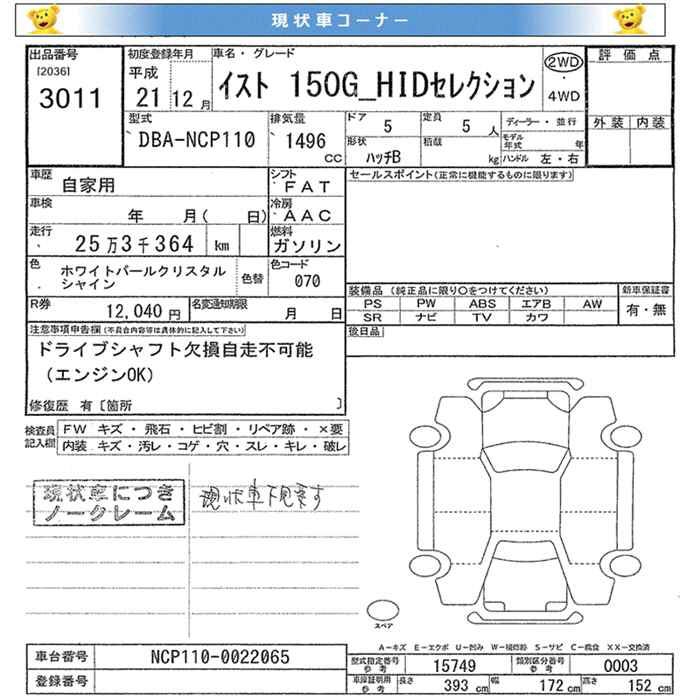 現状車コーナー
出品番号
[2036]
3011
初度登録年月
平成
21 12月
車名・グレード
イスト 150G_HIDセレクション
2WD
・
4WD
評価点
外装 内装
型式
DBA-NCP110
排気量
1496
CC
ドア
5
定員
5 人
ディーラー・並行
モデル
年式 年
形状
ハッチB
積載
kg
ハンドル 左・右
車歴
自家用
シフト
FAT
セールスポイント(正常に機能するものに限ります)
車検
年 月( 日)
冷房
AAC
走行
25万3千364 km
燃料
ガソリン
色
ホワイトパールクリスタル
シャイン
色替
色コード
070
装備品 (純正品に限り○をつけてください)
PS PW ABS エアB AW
SR ナビ TV カワ
新車保証書
有・無
R券
12,040円
名変通知期限
月 日
後日品
注意事項申告欄(不具合内容等は具体的に記入して下さい)
ドライブシャフト欠損自走不可能
(エンジンOK)
修復歴 有〔箇所 〕
検査員
記入欄
FW キズ・飛石・ヒビ割・リペア跡・×要
内装 キズ・汚レ・コゲ・穴・スレ・キレ・破レ
現状車につき
ノークレーム
現状車下見要す
スペア
A-キズ E-エクボ U-凹み W-補修跡 S-サビ C-腐食 XX-交換済
車台番号
NCP110-0022065
登録番号
型式指定番号
参考
15749
類別区分番号
参考
0003
車庫証明用
参考
長さ
393 cm
幅
172 cm
高さ
152 cm